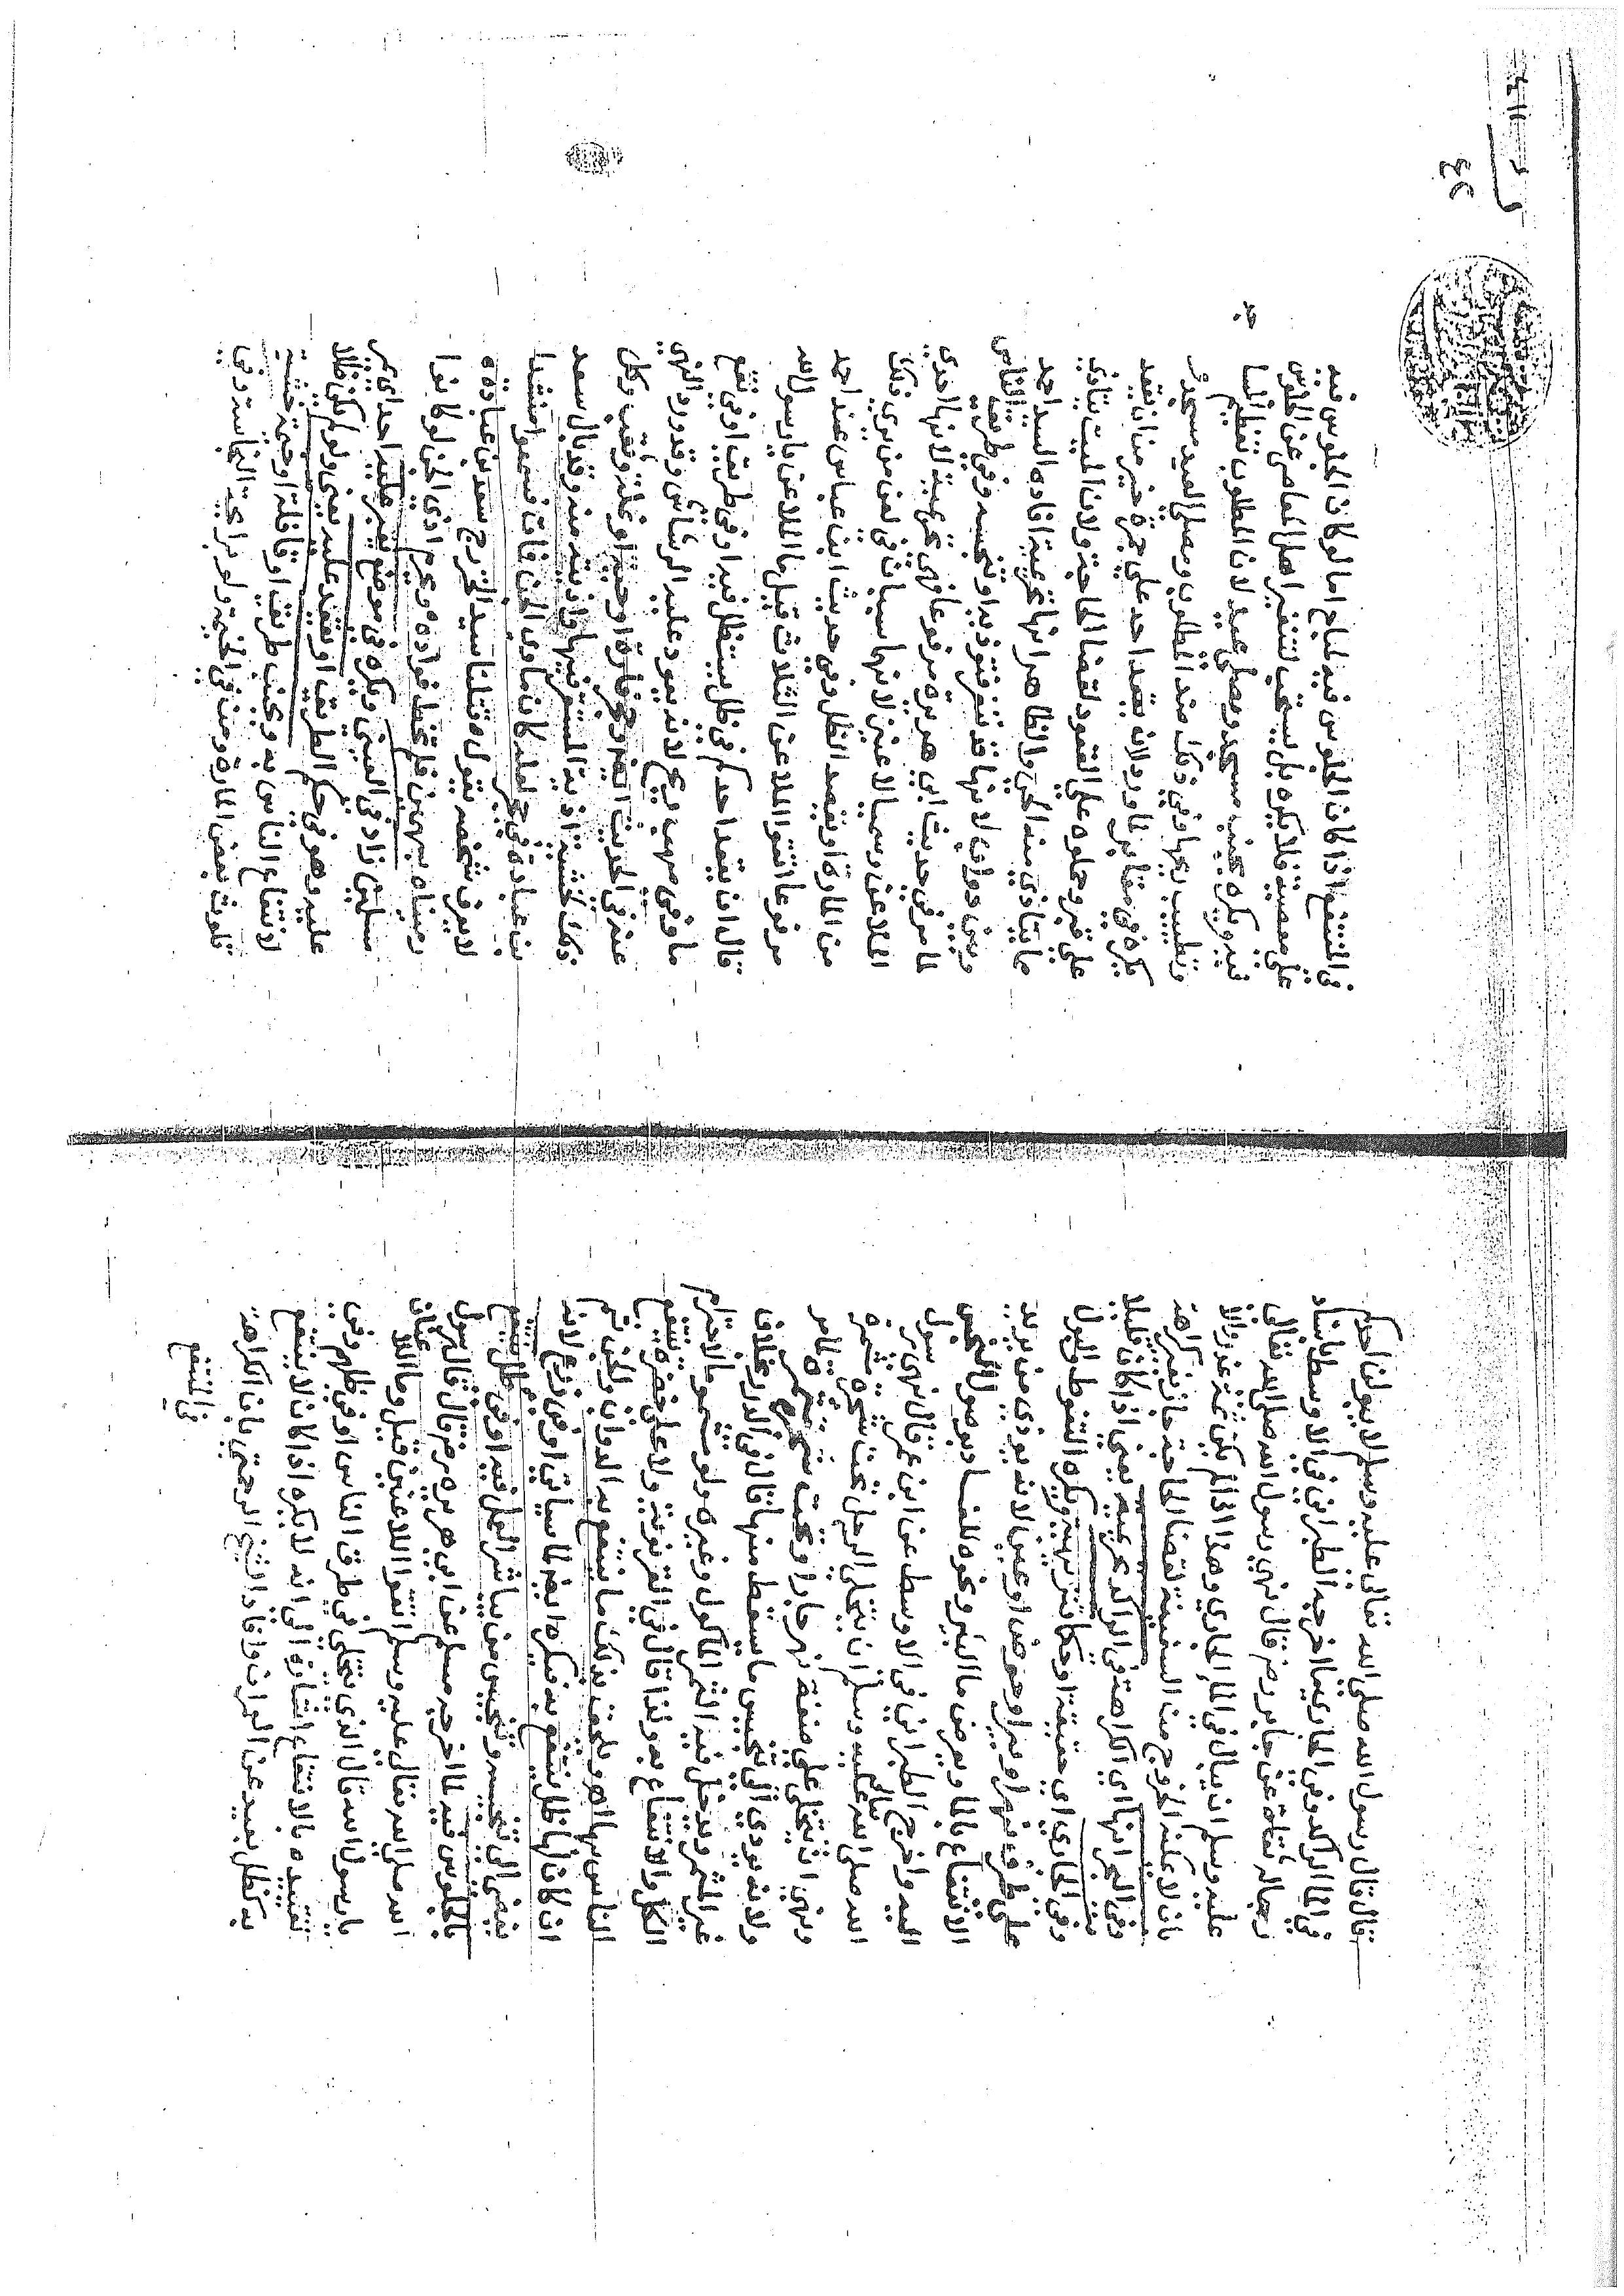 قال قال رسول الله صلى الله تعالى عليه وسلم لا يبولن احدكم
في الماء الراكد وفي الجاري لما اخرجه الطبراني في الاوسط باسناد
رجاله ثقات عن جابر رض قال نهى رسول الله صلى الله تعالى
عليه وسلم ان يبال في الماء الجاري وهذا اذا لم يكن ثمة عذر والا
بان لا يمكنه الخروج من السفينة لقضاء الحاجة جاز بغير كراهة
وفي البحر انها اي الكراهة في الراكد تحريمية يعني اذا كان قليلا
وفي الجاري اي حقيقة او حكما تنزيهية ويكره التغوط والبول
على طرف نهر او بير او حوض او عين لانه يوذي من يريد
الانتفاع بالماء ويعرض ماء البير ونحوه للفساد بوصول النجس
اليه واخرج الطبراني في الاوسط عن ابن عمر قال نهى رسول
الله صلى الله تعالى عليه وسلم ان يتخلى الرجل تحت شجرة مثمرة
ونهى ان يتخلى على ضفة نهر جار او تحت شجرة مثمرة لما مر
ولانه يودي الى تنجيس ما سقط منها قال في الدرر بخلاف
غير المثمر ويدخل فيه الثمر الماكول وغيره ولو مشموما لاحترام
الكل والانتفاع به ولذا قال في الغزنوية ولا على خضرة ينتفع
الناس بها اهـ ويلحق بذلك ما ينتفع به الدواب ولكن ثم
ان كان لها ظل ينتفع به فيكره ايضا لما سياتي او في زرع لانه
يفضي الى تنجيسه وتنجيس من يباشر العمل فيه او في ظل ينتفع
بالجلوس فيه لما اخرجه مسلم عن ابي هريره رض قال قال رسول
الله صلى الله تعالى عليه وسلم اتقوا اللاعنين قيل وما اللاعنان
يا رسول الله قال الذي يتخلى في طرق الناس او في ظلهم وفي
تقييده بالانتفاع اشارة الى انه لا يكره اذا كان لا ينتفع
به كظل بعيد عن العمران وافاد الشيخ الرحمتي بان الكراهة
في المنتفع
في المنتفع اذا كان الجلوس فيه لمباح اما لو كان الجلوس فيه
على معصية فلا يكره بل يستحب لتنفير اهل المعاصي عن الجلوس
فيه ويكره بجنب مسجد ومصلى عيد لان المطلوب تعظيم
وتطييب ريحها وفي ذكك منه المطلوب ومصلى العيد مسجد
يكره في مقابر لما ورد لان يقعد احد على جمرة خير من ان يقعد
على قبر وحملوه على القعود لقضاء الحاجة ولان الميت يتاذى
بما يتاذى منه الحي والظاهر انها تحريمية افاده السيد احمد
وبين دواب لانها قد تنفر فتوذيه او تنجسه وفي طريق الناس
لما مر في حديث ابي هريرة مرفوعا فهي تحريمية لانها احدى
الملاعن وسميا لاعنين لانها سببان في لعن من يرى ذلك
من المارة او يقصد الظل وفي حديث ابن عباس عند احمد
مرفوعا اتقوا الملاعن الثلاث قيل ما الملاعن يا رسول الله
قال ان يقعد احدكم في ظل يستظل فيه او في طريق او في نقع
ماء وفي مهب ريح لانه يعود عليه الرشاش وقد ورد النهي
عنه في الحديث ايضا وجحر فارة او حية او نملة وثقب وكل
ذلك لخشية اذية المستقر فيها واذيته منه وقد بال سعد
بن عبادة في جحر فعله كان ماوى الجن فمات فسمعوا منشدا
لا يعرف شخصه يقول قتلنا سيد الخزرج سعد بن عبادة
رميناه بسهمين فلم نخط فواده ويحرم اذى الجن لو كانوا
مسلمين زاد في العيني ويكره في موضع يعبر عليه احد اي يمر
عليه وهو في حكم الطريق او يقعد عليه يعني ولو لم يكن ظلا
لانتفاع الناس به وبجنب طريق او قافلة او خيمة خشية
تلوث بعض المارة ومن في الخيمة ولو برائحة النجاسة وفي